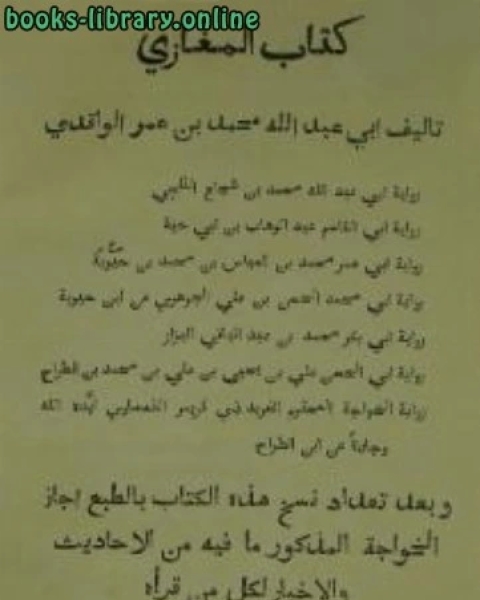 books-library.online
كتاب المغازي
تاليف ابي عبد الله محمد بن عمر الواقدي
رواية ابي عبد الله محمد بن شجاع الثلجي
رواية ابي القاسم عبد الوهاب بن ابي حية
رواية ابي عمر محمد بن العباس بن محمد بن حيوية
رواية ابي محمد الحسن بن علي الجوهري عن ابن حيوية
رواية ابي بكر محمد بن عبد الباقي البزار
رواية ابي الحسن علي بن يحيى بن علي بن محمد بن الطراح
رواية الخواجة المعلم الفريد فون كريمر النمساوي ايده الله
وجادة عن ابن الطراح
وبعد تعداد نسخ هذه الكتاب بالطبع اجاز
الخواجة المذكور ما فيه من الاحاديث
والاخبار لكل من قرأه